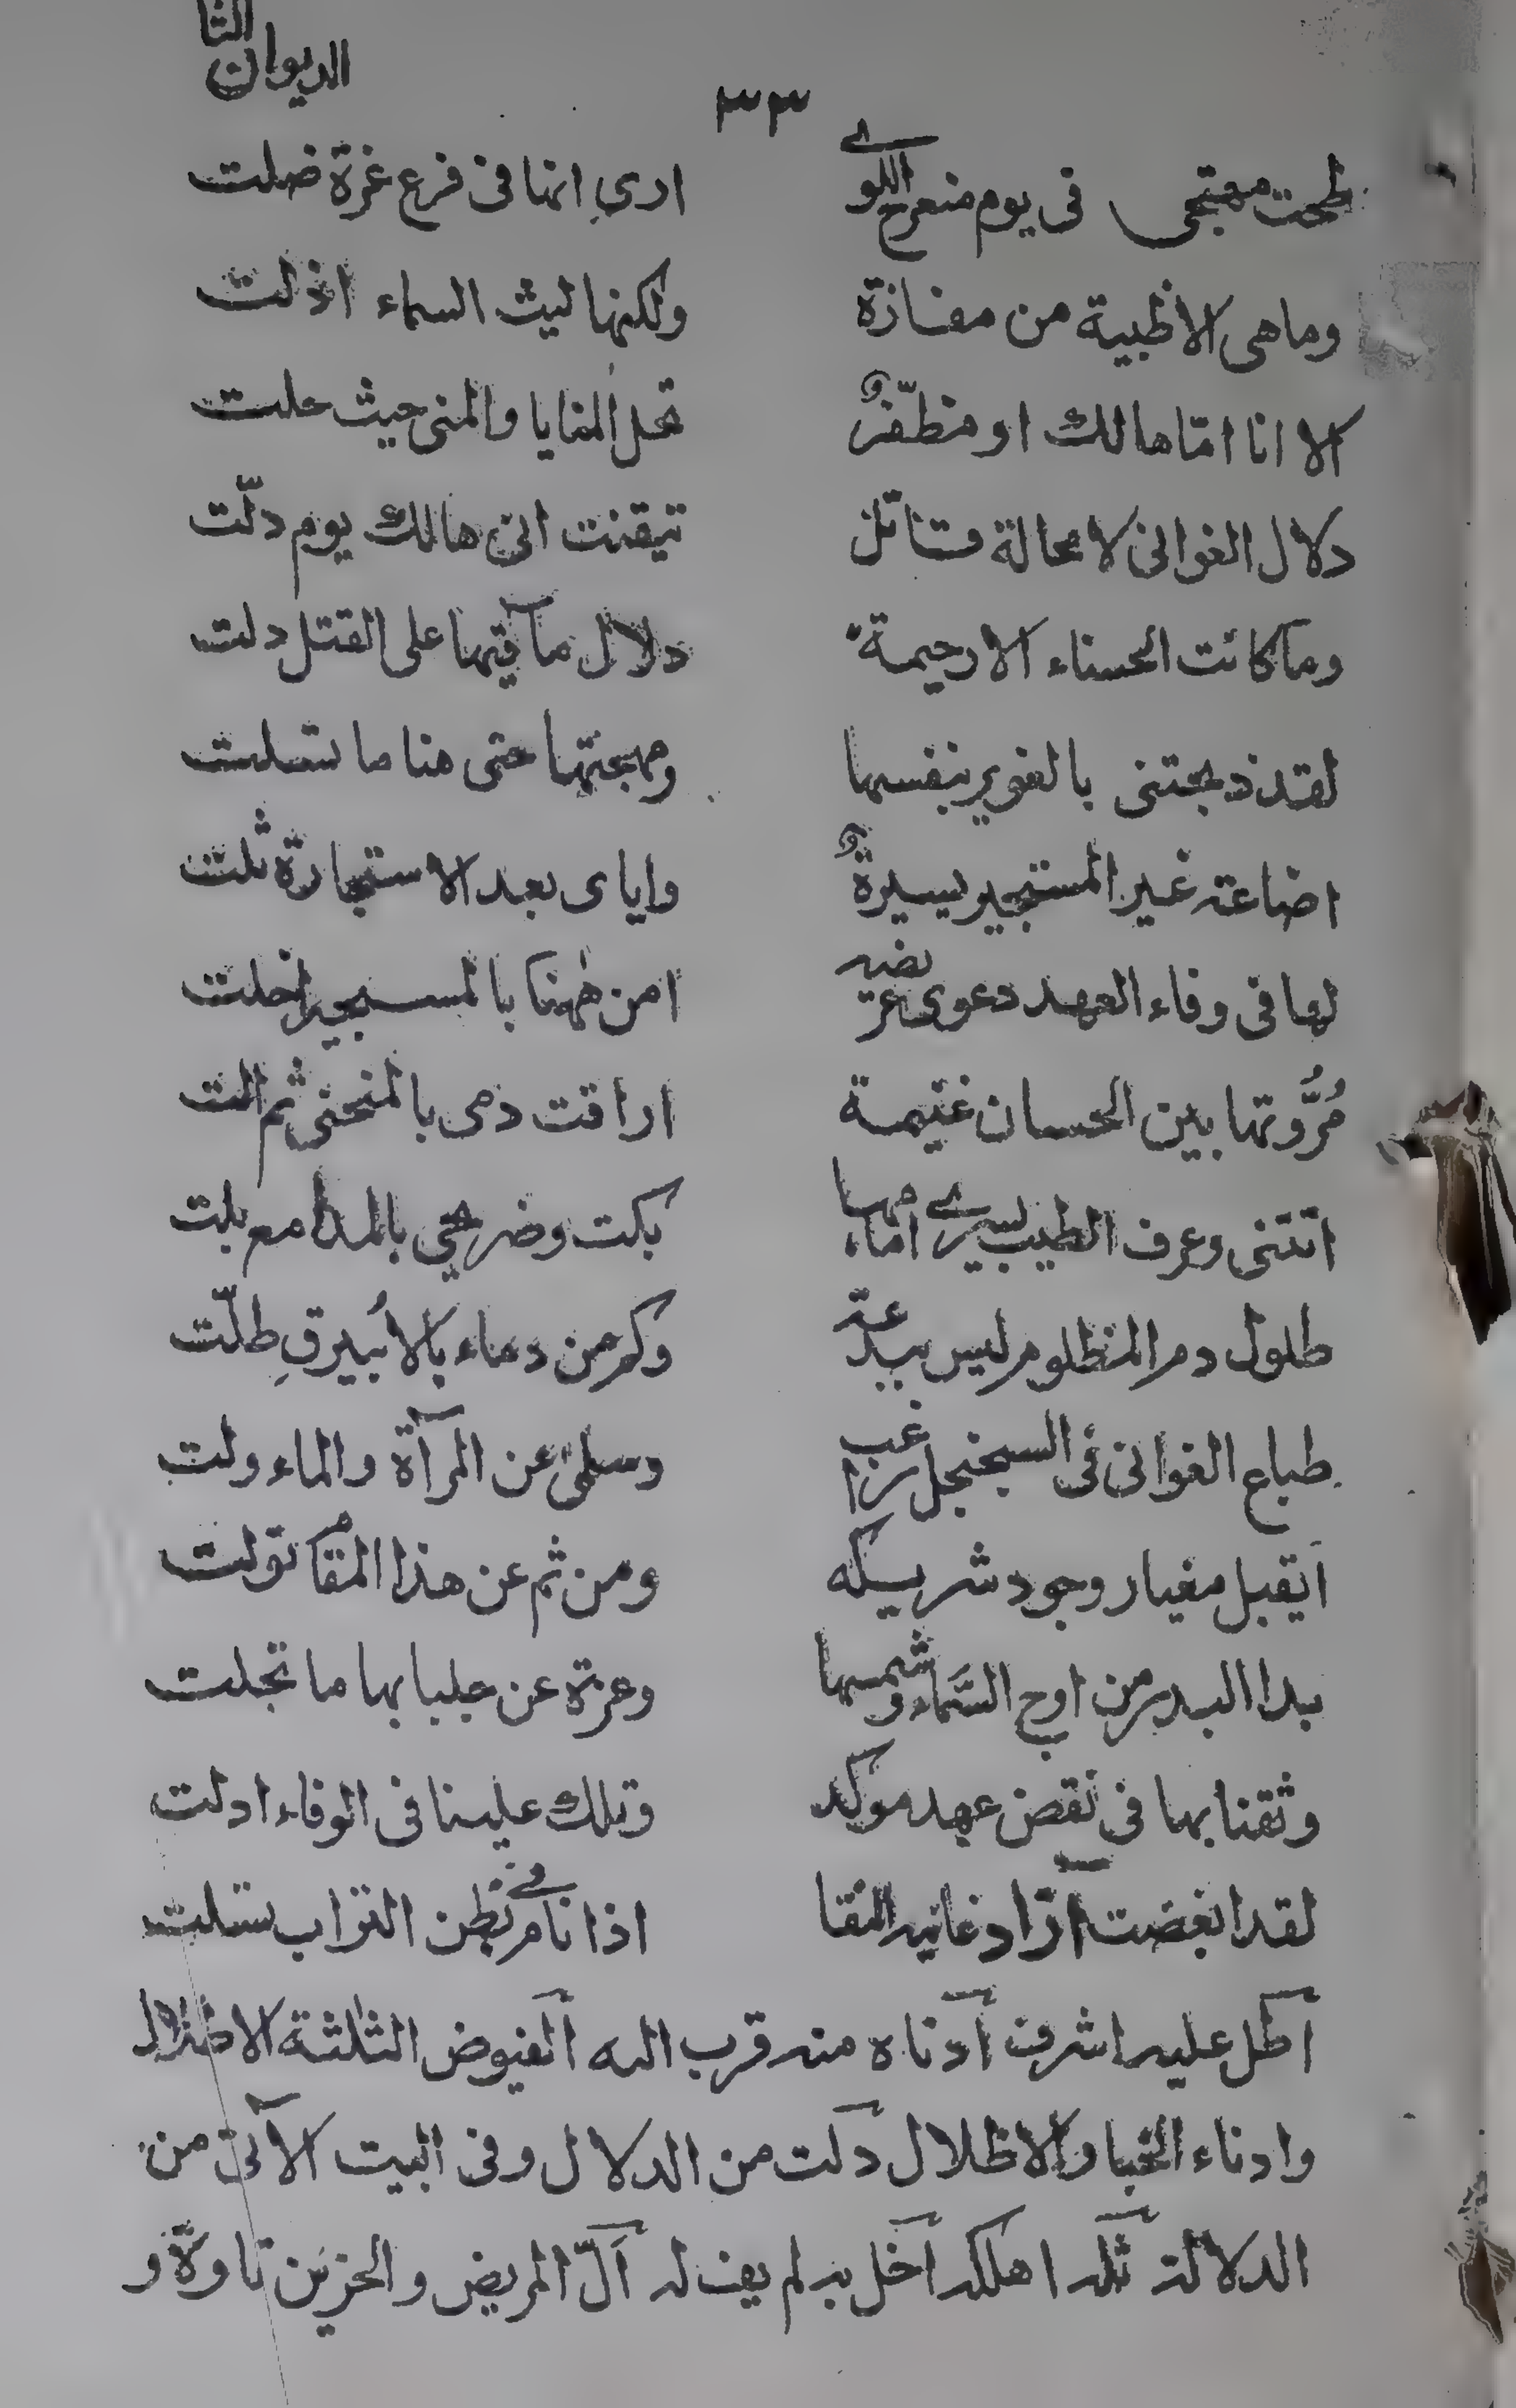 الديوان الثا
٣٣
طحت مهجتي في يوم منعرج اللوى ارى انها فى فرع غرة ضلت
وما هى الا ظبية من مفازة ولكنها ليث السماء اذلت
الا انا امّا هالك او مظفّرٌ تحل المنايا والمنى حيث حلت
دلال الغوانى لا محالة قاتل تيقنت انى هالك يوم دلّت
وما كانت الحسناء الا رحيمة دلائل مآقيها على القتل دلت
لقد ذبحتنى بالغوير بنفسها ومهجتها حتى هنا ما تسلت
اضاعة غير المستجير يسيرةٌ واياى بعد الاستجارة ثلت
لها فى وفاء العهد دعوى عريضة امن ههنا بالمستجير اخلت
مُرُوَّتها بين الحسان غنيمة اراقت دمى بالمنحنى ثم الت
اتتنى وعرف الطيب يسرى امامها بكت وضريحى بالمدامع بلت
طلول دم المظلوم ليس ببدعة وكم من دماء بالأبيرقِ طلّت
طباع الغوانى فى السجنجل رغب وسلمى عن المرآة والماء ولت
أيقبل مغيار وجود شريكه ومن ثم عن هذا المقام تولت
بدا البدر من اوج السَّماء وشمسها وعزة عن جلبابها ما تجلت
وثقنا بها فى نقض عهد موكد وتلك علينا فى الوفاء ادلت
لقد ابغضت آزاد غانية النقا اذا نام فى بطن التراب تسلت
اظل عليه اشرف ادناه منه قرب اليه الفيوض الثلثة الاظلال
وادناء الخبا والاظلال دلت من الدلال وفى البيت الآتى من
الدلالة ثله اهلكه اخل به لم يف له الّ المريض والحزين تاوّه و